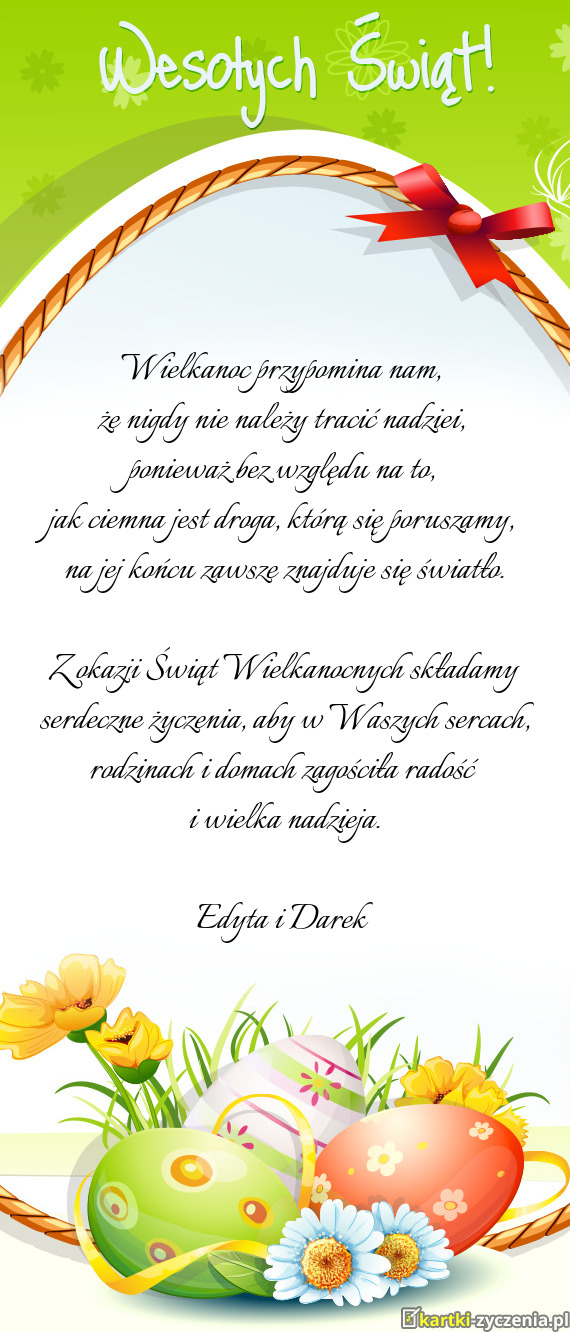 Wesołych Świąt!
Wielkanoc przypomina nam,
że nigdy nie należy tracić nadziei,
ponieważ bez względu na to,
jak ciemna jest droga, którą się poruszamy,
na jej końcu zawsze znajduje się światło.
Z okazji Świąt Wielkanocnych składamy
serdeczne życzenia, aby w Waszych sercach,
rodzinach i domach zagościła radość
i wielka nadzieja.
Edyta i Darek
kartki-zyczenia.pl